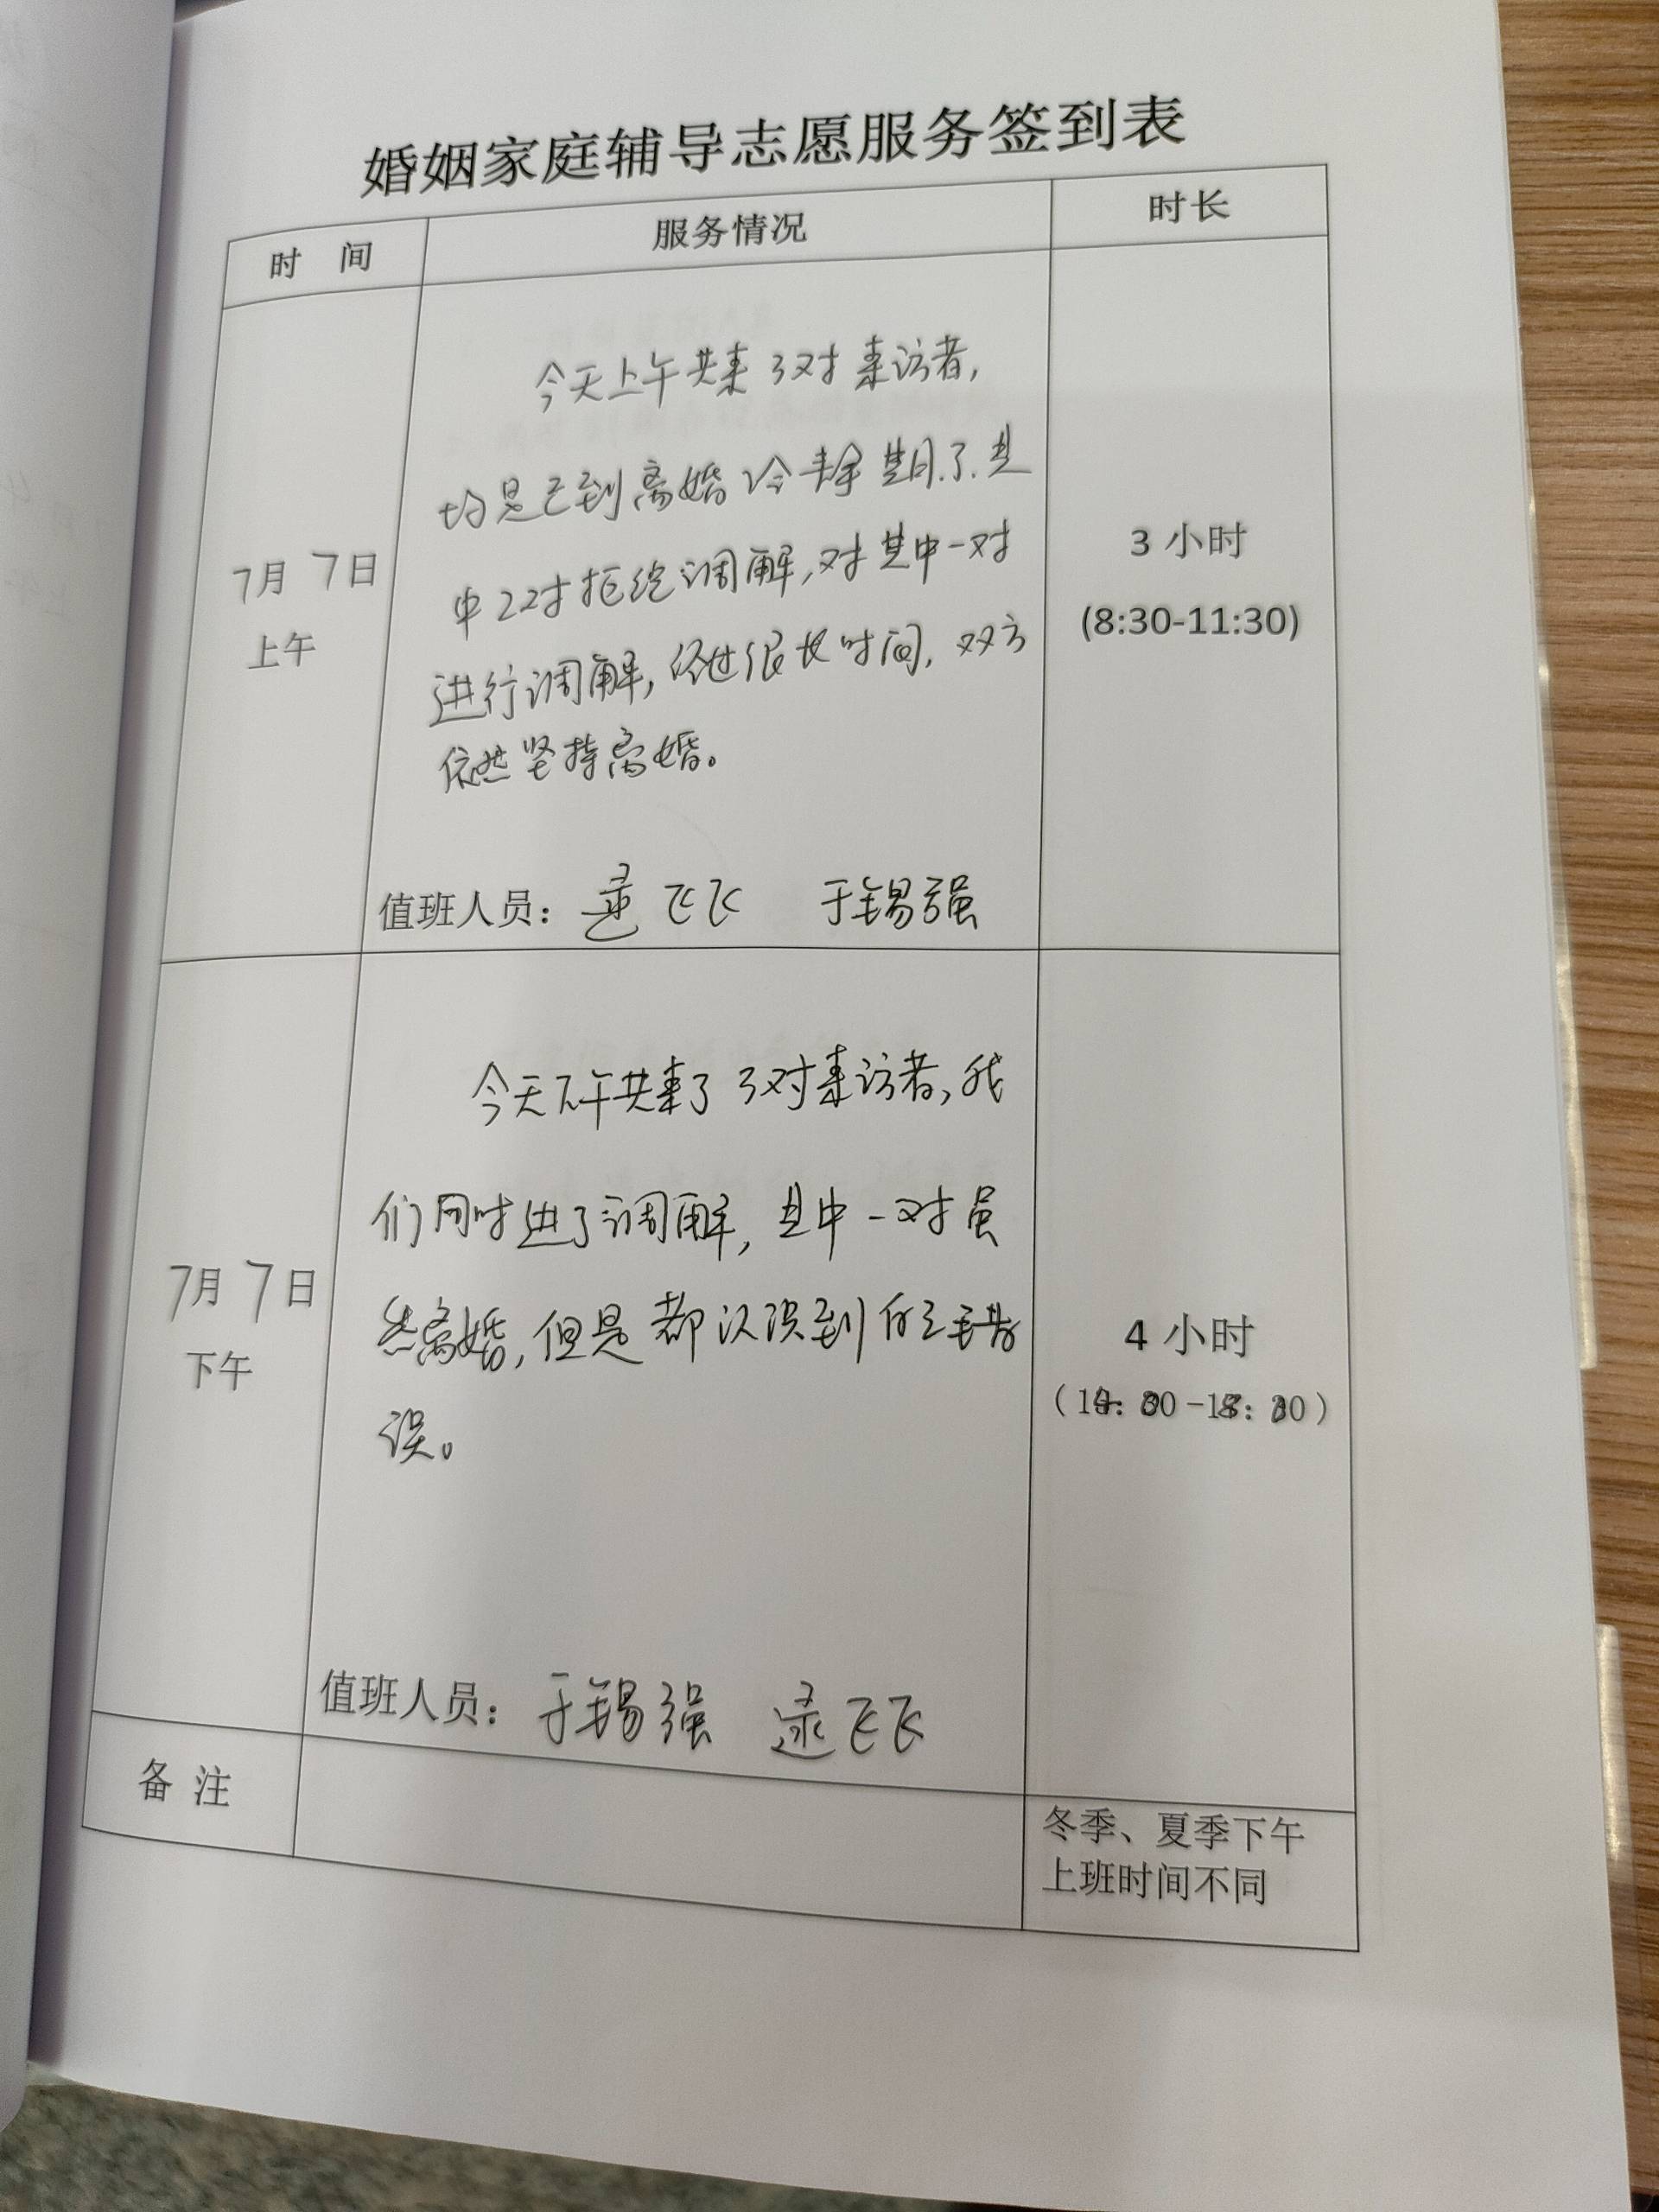 婚姻家庭辅导志愿服务签到表
时 间 服务情况 时长
今天上午共来3对来访者,
均是已到离婚冷静期了.其
中2对拒绝调解,对其中一对
进行调解,经过很长时间,双方
依然坚持离婚。
7月7日
上午
3 小时
(8:30-11:30)
值班人员: 逯飞飞 于锡强
今天下午共来了3对来访者,我
们同时进了调解,其中一对虽
然离婚,但是都认识到自己错
误。
7月7日
下午
4 小时
值班人员: 于锡强 逯飞飞
备 注
冬季、夏季下午
上班时间不同